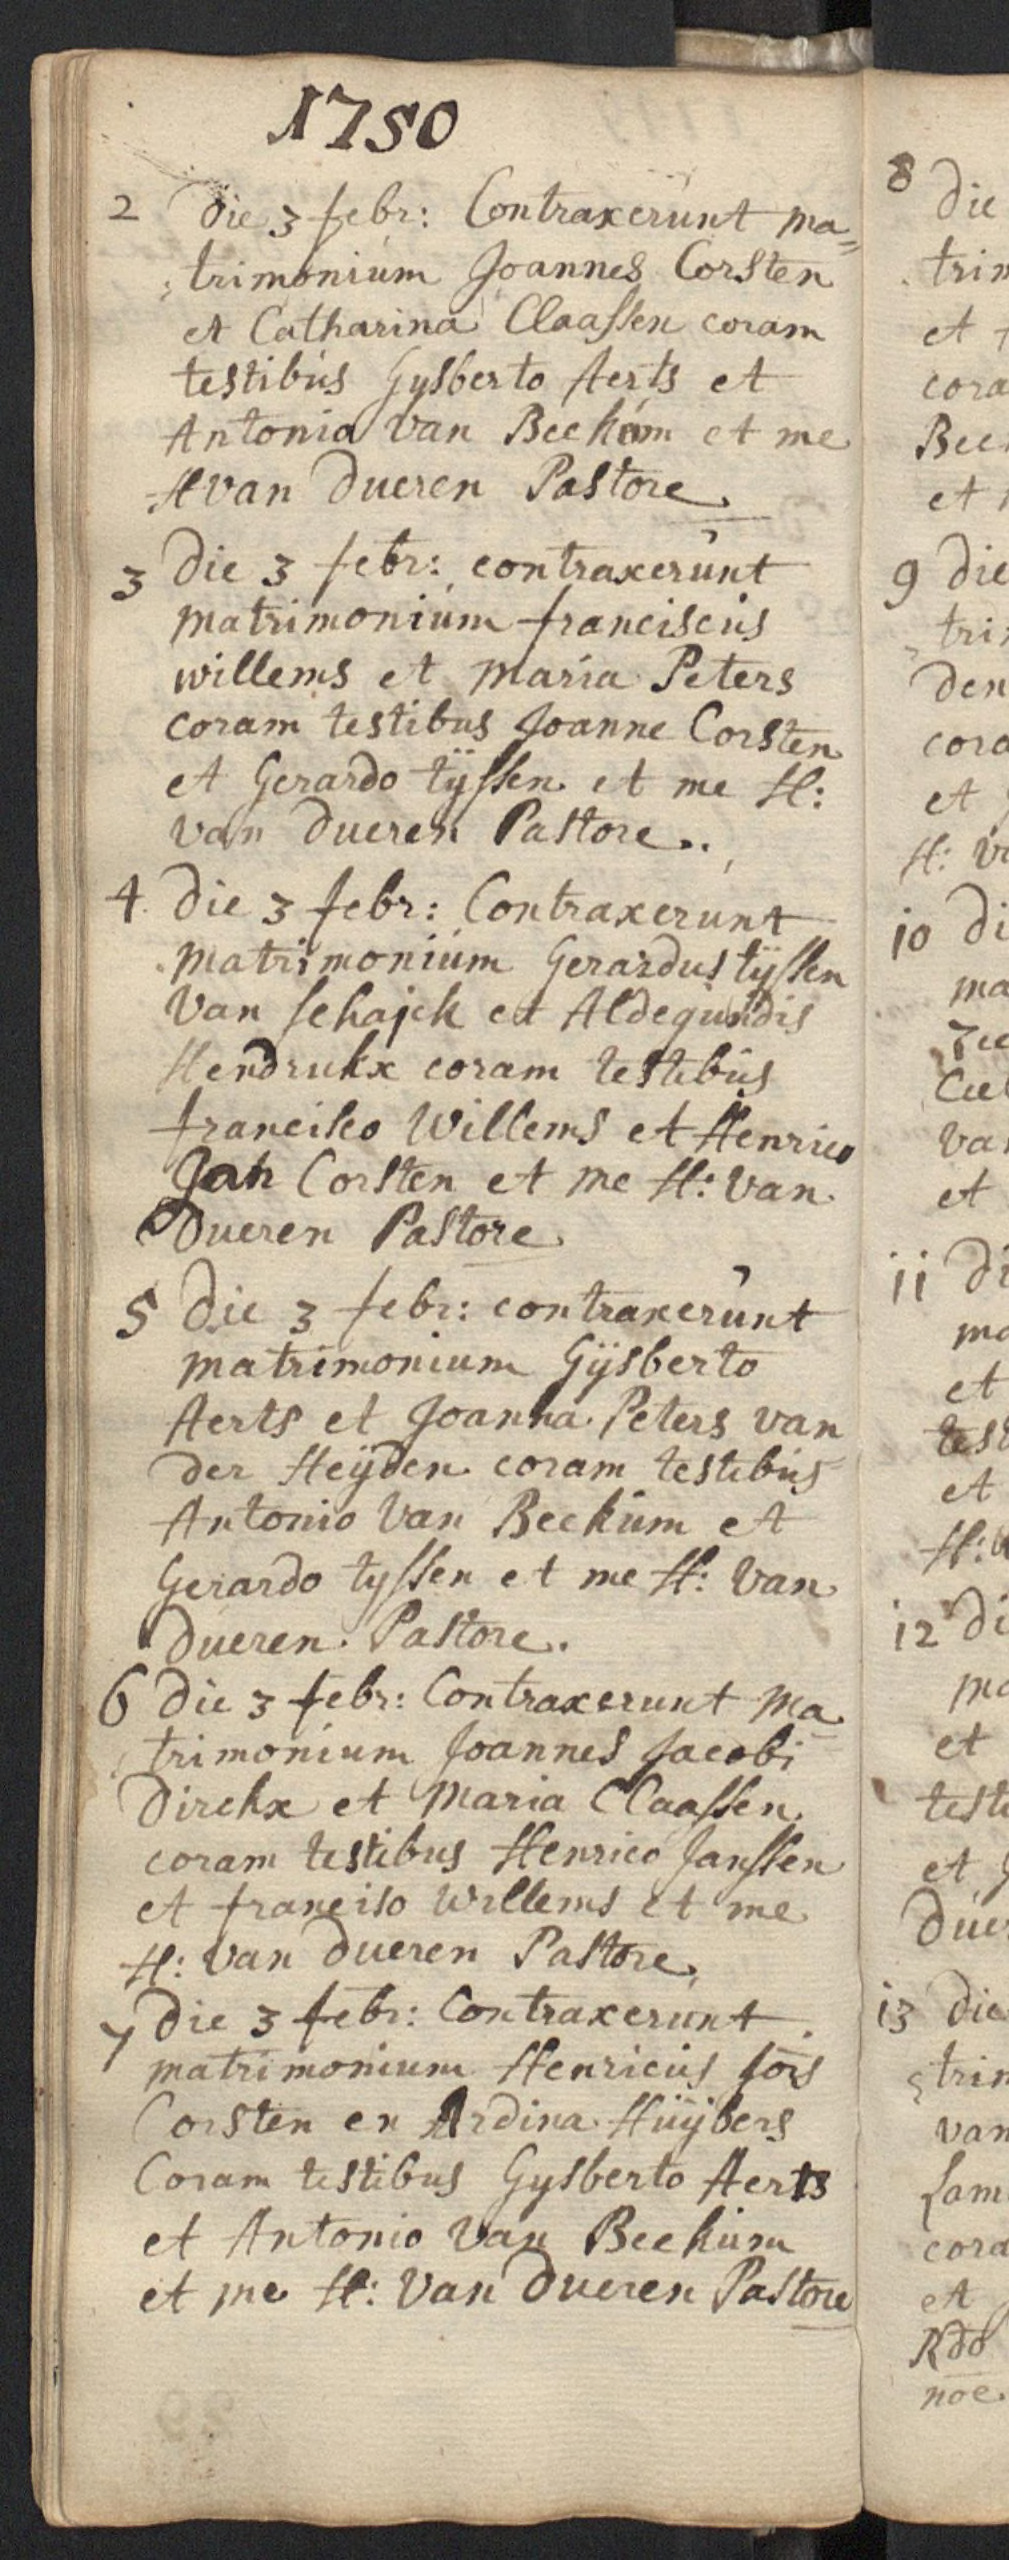 1750
2 die 3 febr: Contraxerunt ma=
trimonium Joannes Corsten
et Catharina Claassen coram
testibus Gysberto Aerts et
Antonio van Beekum et me
H van Dueren Pastore
3 die 3 febr: contraxerunt
matrimonium franciscus
willems et Maria Peters
coram testibus Joanne Corsten
et Gerardo tÿssen et me H:
van Dueren Pastore..
4. die 3 febr: Contraxerunt
matrimonium Gerardus tÿssen
van schajck et Aldegundis
Hendrukx coram testibus
francisco Willems et Henrico
Jan Corsten et me H: van
Dueren Pastore
5 die 3 febr: contraxerunt
matrimonium Gÿsberto
Aerts et Joanna Peters van
der Heÿden coram testibus
Antonio van Beekum et
Gerardo tyssen et me H: van
Dueren. Pastore.
6 die 3 febr: Contraxerunt ma
trimonium Joannes Jacobi
Dirckx et Maria Claassen
coram testibus Henrico Janssen
et franciso willems et me
H: van Dueren Pastore
7 die 3 febr: Contraxerunt
matrimonium Henricus Jois
Corsten en Ardina Huÿbers
Coram testibus Gysberto Aerts
et Antonio van Beekum
et me H: van Dueren Pastore
8 die
trim
et
cora
Bee
et
9 die
trim
den
cora
et
H: v
10 di
ma
van
et
11 di
ma
et
test
et
H: v
12 di
ma
et
testi
et
Duer
13 die
trim
van
Lam
cora
et
Rdo
noe.